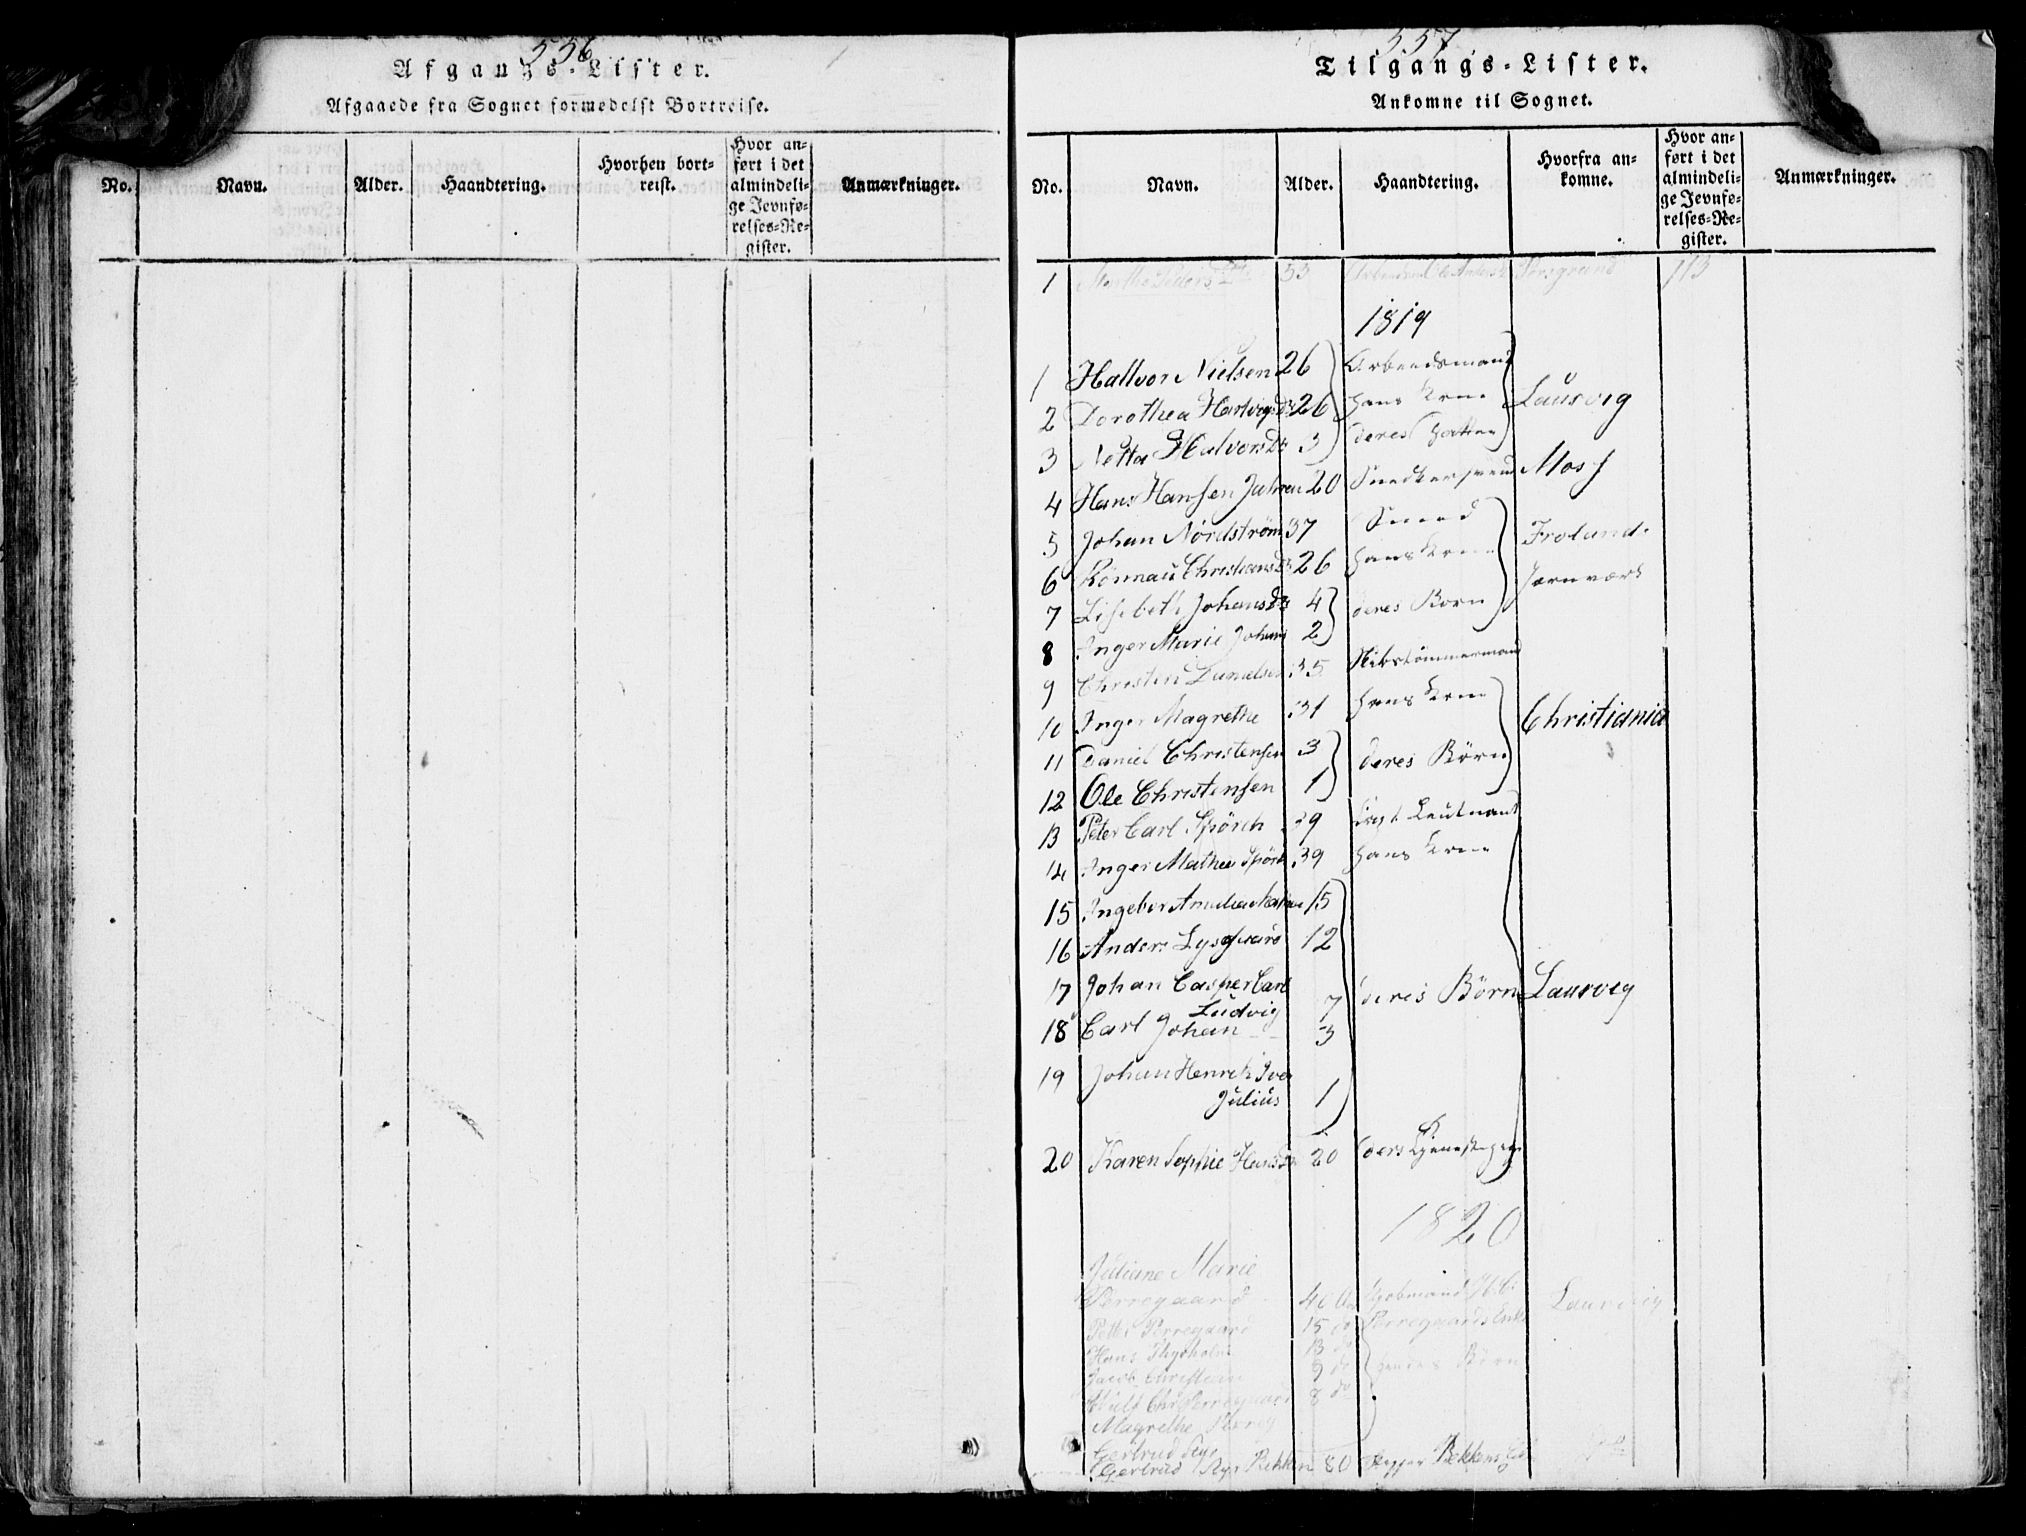 556
Afgangs-Lister.
Afgaaede fra Sognet formedelst Bortreise.
No. Navn. Alder. Haandtering. Hvorhen bortreist. Hvor anført i det almindelige Jevnførelses-Register. Anmærkninger.
557
Tilgangs-Lister.
Ankomne til Sognet.
No. Navn. Alder. Haandtering. Hvorfra ankomne. Hvor anført i det almindelige Jevnførelses-Register. Anmærkninger.
1 Marthe Peders 53 Porsgrund 113
1819
1 Hallvor Nielsen 26 Arbeidsmand
2 Dorothea Hartvigsdr 26 hans Kone Laurvig
3 Netta Halvorsdr 3 deres Datter
4 Hans Hansen 20 Snedkersvend Moss
5 Johan Nordström 37 Smed Froland
6 Rönnau Christiansdr 26 hans Kone Jærnværk
7 Lisebeth Johansdr 4 deres Børn
8 Inger Marie Johans 2
9 Christen Danielsen 35 Skibstømmermand
10 Inger Magrethe 31 hans Kone Christiania
11 Daniel Christensen 3 deres Børn
12 Ole Christensen 1
13 Peter Carl Spörck 39 Leutnant
14 Inger Mathea Spörk 39 hans Kone
15 Ingebor 15
16 Anders Lysgaard 12
17 Johan Casper Carl
Ludvig 7 deres Børn Laurvig
18 Carl Johan 3
19 Johan Henrik Iver
Julius 1
20 Karen Sophie Hansdr 20 deres Tjenestepige
1820
Juliane Marie
Perregaard 40 Kjøbmand Laurvig
Petter Perregaard 15 do Perregaards Enke
Hans Thyholm 13 do
Jacob Christian 9 do hendes Børn
Chr Perregaard 8 do
Magrethe
Gertrud
Gertrud Bekken 80 Bekkens